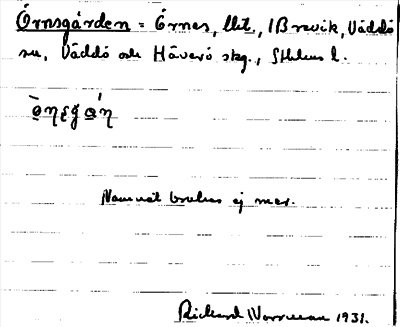 Örnsgården = Örnas, llet, i Bravik, Väddö
sn, Väddö och Häverö skg., Sthlms l.
Namnet brukas ej mer.
Rickard Norrman 1931.